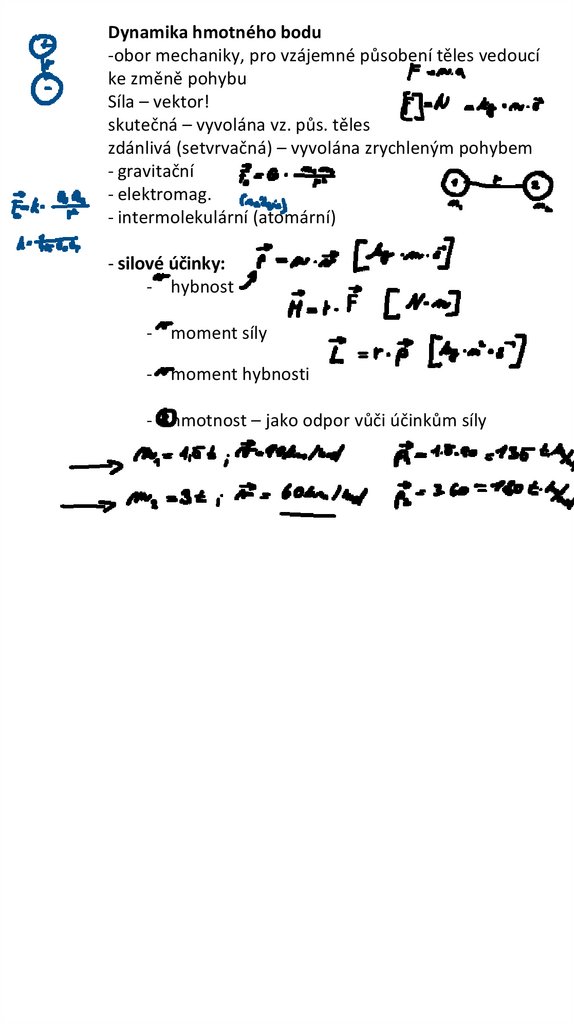 Dynamika hmotného bodu
-obor mechaniky, pro vzájemné působení těles vedoucí
ke změně pohybu
F = m.a
Síla – vektor!
[F] = N = kg · m · s
skutečná – vyvolána vz. půs. těles
zdánlivá (setvrvačná) – vyvolána zrychleným pohybem
- gravitační
1 r 2
m₁ m₂
- elektromag.
- intermolekulární (atomární)
- silové účinky:
p = m · v [kg · m · s⁻¹]
- hybnost
M = r · F [N · m]
- moment síly
L = r · p [kg · m² · s⁻¹]
- moment hybnosti
- hmotnost – jako odpor vůči účinkům síly
m₁ = 1,5 t ; v = 90 km/hod p₁ = 1,5 · 90 = 135 t · km/h
m₂ = 3 t ; v = 60 km/hod p₂ = 3 · 60 = 180 t · km/hod